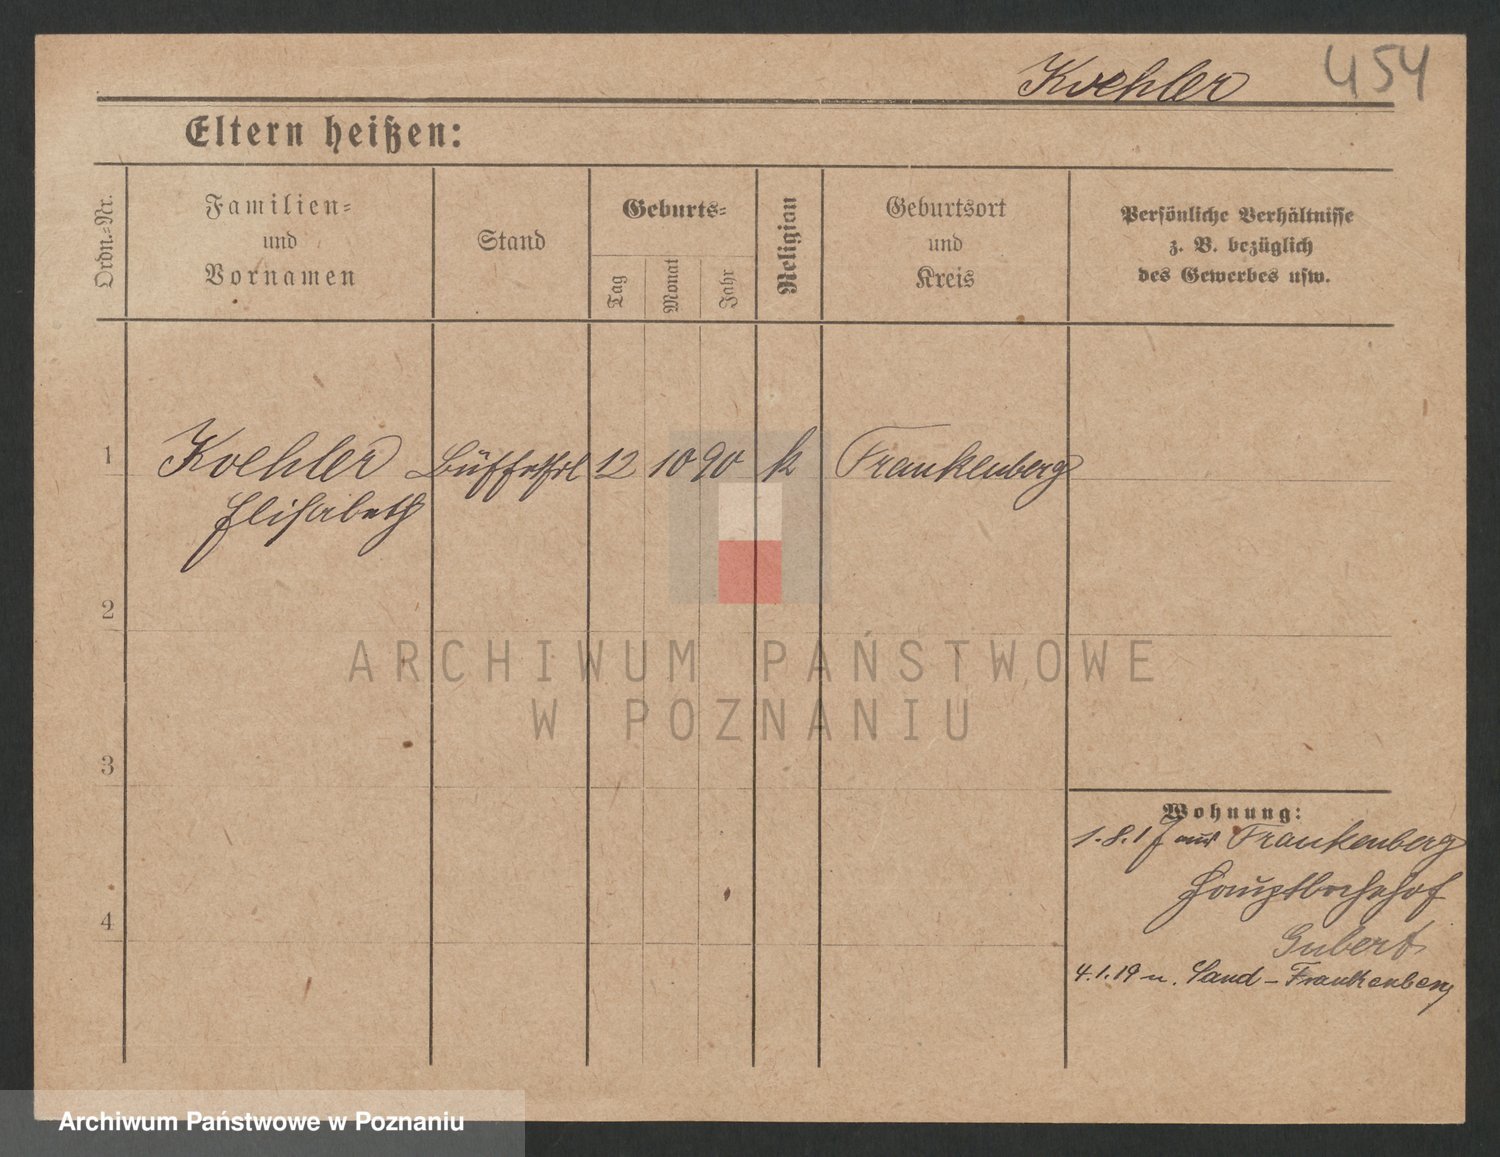 Koehler 454
Eltern heißen:
Ordn.-Nr.
Familien-
und
Vornamen
Stand
Geburts-
Tag
Monat
Jahr
Religion
Geburtsort
und
Kreis
Persönliche Verhältnisse
z. B. bezüglich
des Gewerbes usw.
1 Koehler Büffetfrl 12 10 90 k Frankenberg
Elisabeth
2
ARCHIWUM PAŃSTWOWE
W POZNANIU
3
Wohnung:
1.8.17 aus Frankenberg
Hauptbahnhof
Gubert
4
4.1.19 n. Sand-Frankenberg
Archiwum Państwowe w Poznaniu